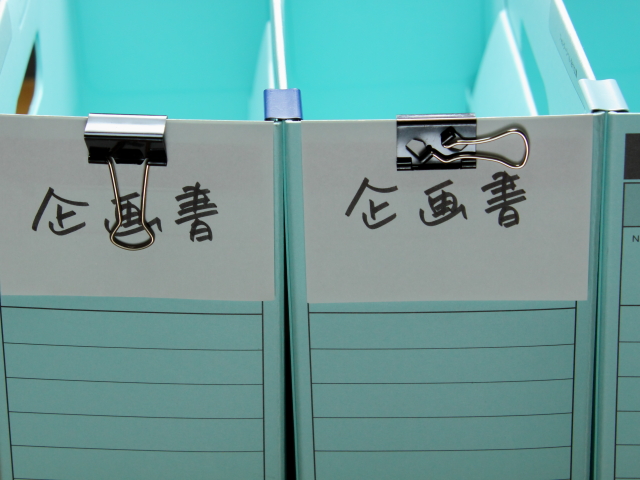 企画書
企画書
N